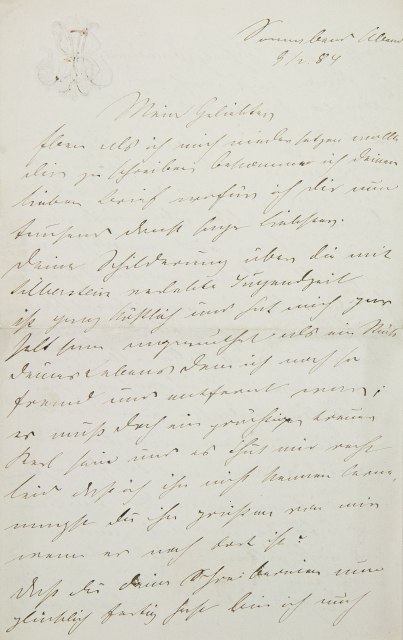 Sonnabend Abend
9/2. 84
Mein Geliebter,
Eben als ich mich niedersetzen wollte
dir zu schreiben bekomme ich deinen
lieben Brief wofür ich dir nun
tausend Dank sage Liebster.
Deine Schilderung über die mit
Silberstein verlebte Jugendzeit
ist ganz köstlich und hat mich gar
seltsam angemuthet als ein Stück
deines Lebens dem ich noch so
fremd und entfernt war;
er muß doch ein prächtiger treuer
Kerl sein und es thut mir recht
leid daß ich ihn nicht kennen lerne,
magst du ihn grüßen von mir
wenn er noch dort ist?
Daß du deine Schreibereien nun
glücklich fertig hast bin ich